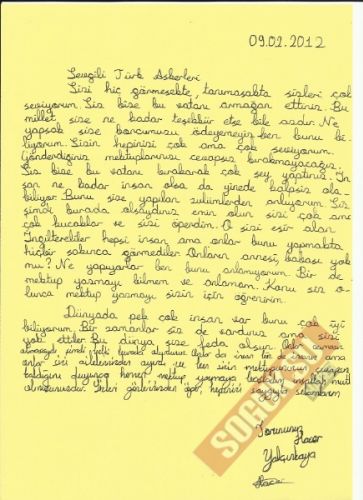 09.02.2012
Sevgili Türk Askerleri
Sizi hiç görmesekte, tanımasakta sizleri çok
seviyorum. Siz bize bu vatanı armağan ettiniz. Bu
millet size ne kadar teşekkür etse bile azdır. Ne
yapsak size borcumuzu ödeyemeyiz ben bunu bi
liyorum. Sizin hepinizi çok ama çok seviyorum.
Gönderdiğiniz mektuplarınızı cevapsız bırakmayacağız.
Siz bize bu vatanı bırakarak çok şey yaptınız. İn
san ne kadar insan olsa da yinede kalpsiz ola
biliyor. Bunu size yapılan zulümlerden anlıyorum. Siz
şimdi burada olsaydınız emin olun sizi çok ama
çok kucaklar ve sizi öperdim. O sizi esir alan
İngiltereliler hepsi insan ama onlar bunu yapmakta
hiçbir sakınca görmediler. Onların annesi, babası yok
mu? Ne yapıyorlar ben bunu anlamıyorum. Bir de
mektup yazmayı bilmem ve anlamam. Konu siz o
lunca mektup yazmayı sizin için öğrenirim.
Dünyada pek çok insan var bunu çok iyi
biliyorum. Bir zamanlar siz de vardınız ama sizi
yok ettiler. Bu dünya size feda olsun.
sizi ailelerinizden ben sizin
duyunca hemen mektup yazmaya
hepinizi saygıyla
Torununuz
Hacer
Yalçınkaya